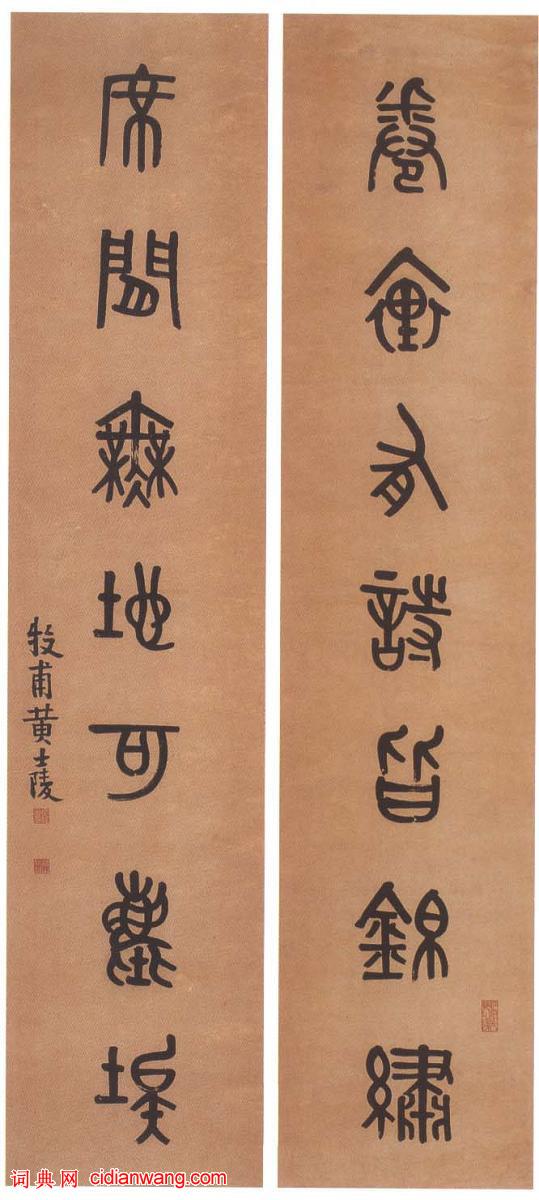 卷有詩皆錦繡
席間無地可塵埃
牧甫黄士陵
词典网 cidianwang.com